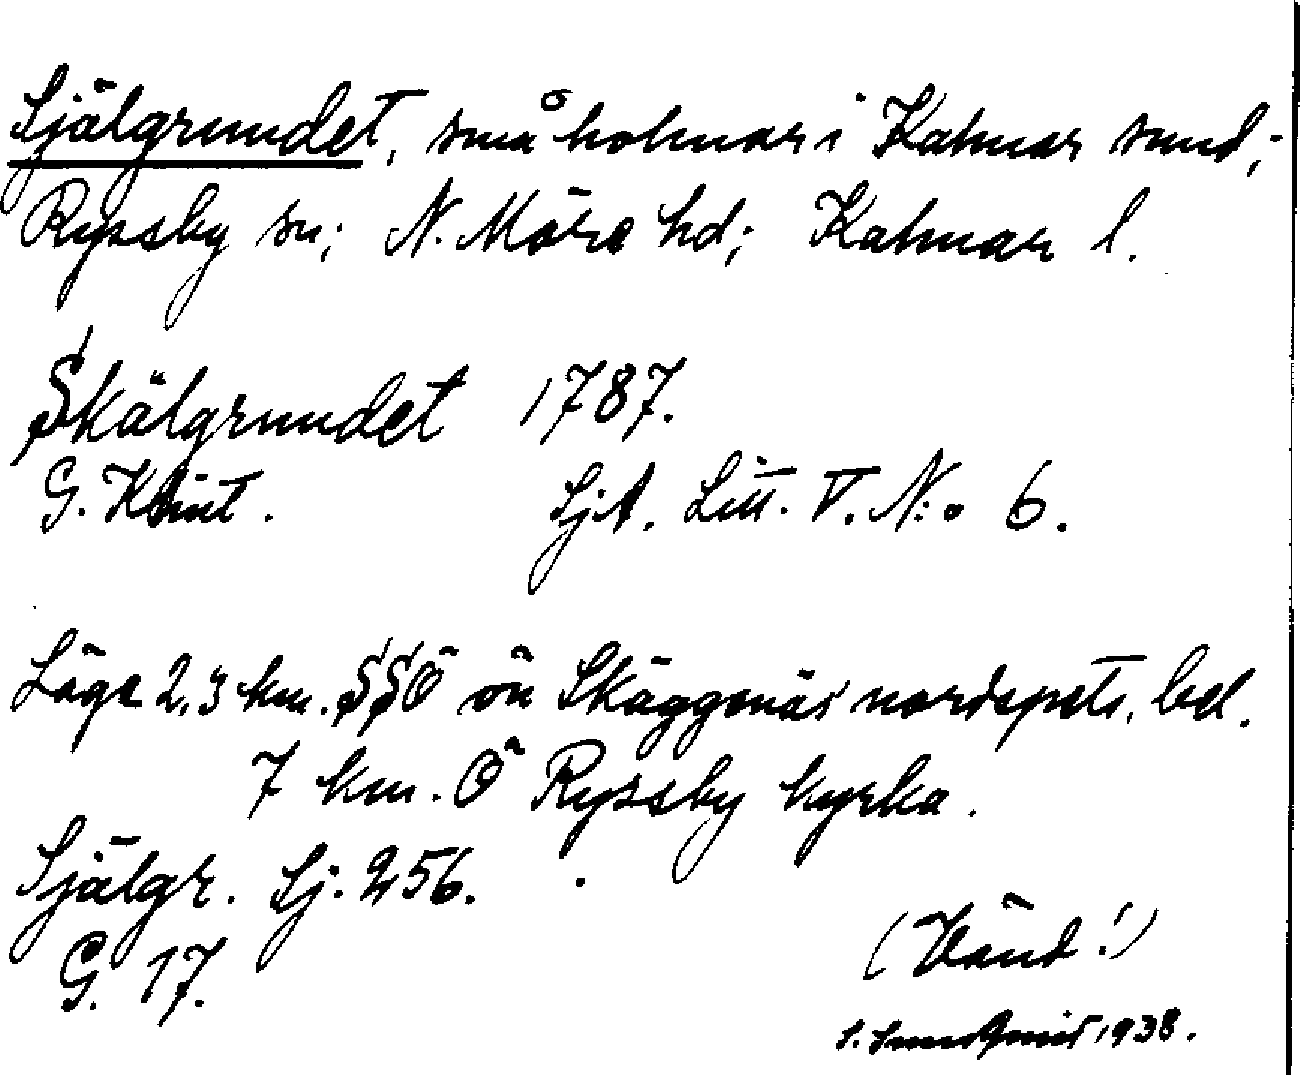 Själgrundet, små holmar i Kalmar sund;
Ryssby sn; N. Möre hd; Kalmar l.
Skälgrundet 1787.
G. Klint. SjA. Litt. V. N:o 6.
Läge 2,3 km. SSÖ om Skäggenäs nordspets, bel.
7 km. Ö Ryssby kyrka.
Själgr. Sj. 256.
G. 17.
(Vänd!)
S. Sundqvist 1938.